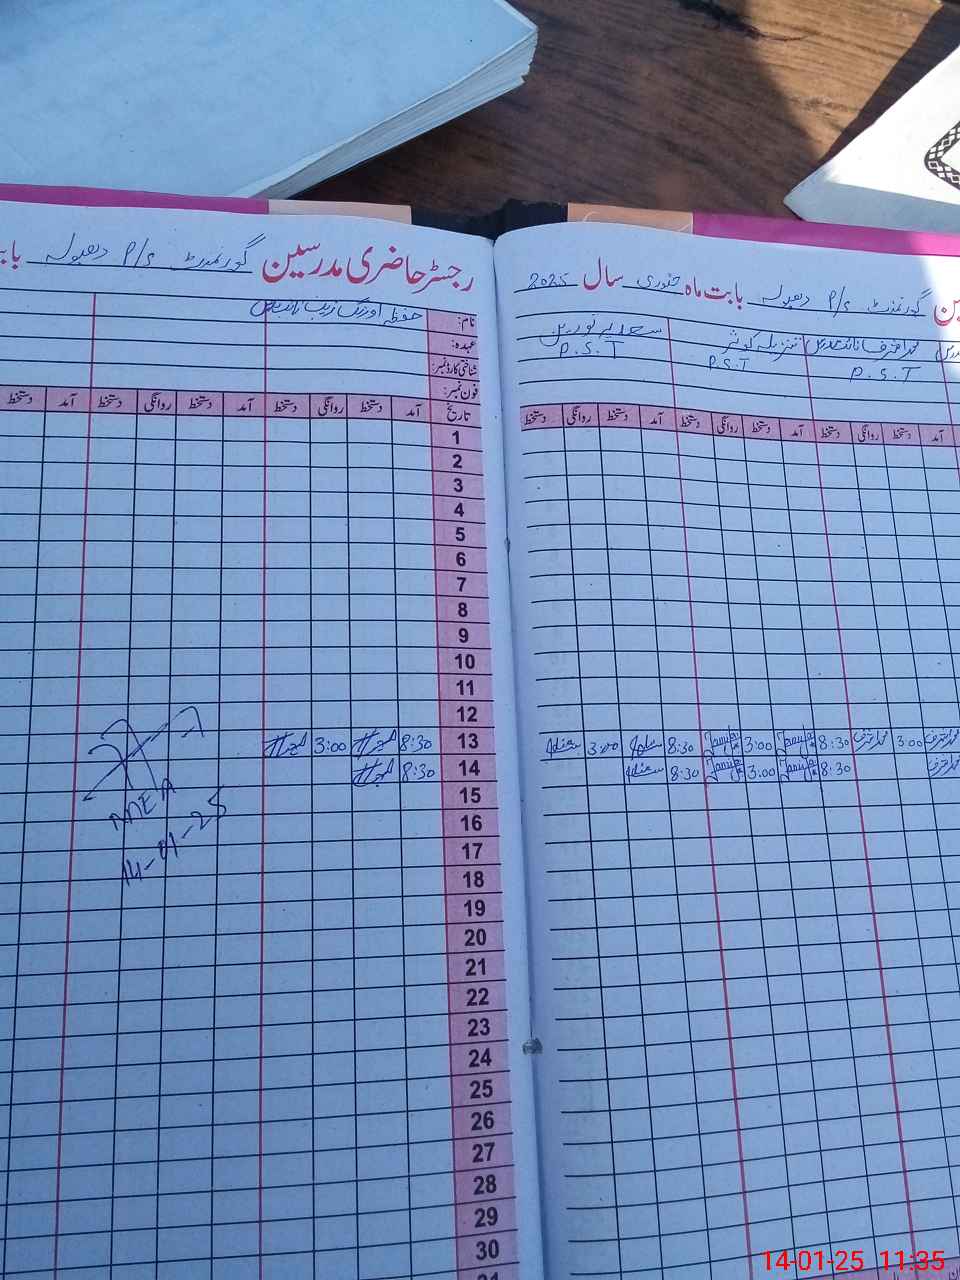 رجسٹر حاضری مدرسین گورنمنٹ P/S دھبولہ
گورنمنٹ P/S دھبولہ بابت ماہ جنوری سال 2025
نام: حفظہ اورنگزیب
عہدہ:
شناختی کارڈ نمبر:
فون نمبر:
سعدیہ نورین
P.S.T
تنزیلہ کوثر
P.S.T
P.S.T
تاریخ آمد دستخط روانگی دستخط آمد دستخط روانگی دستخط آمد دستخط
آمد دستخط روانگی دستخط آمد دستخط روانگی دستخط آمد دستخط روانگی دستخط
1
2
3
4
5
6
7
8
9
10
11
12
13 8:30 3:00
3:00 8:30 3:00 8:30 3:00
14 8:30
8:30 3:00 8:30
15
16
17
18
19
20
21
22
23
24
25
26
27
28
29
30
31
MEA
14-01-25
14-01-25 11:35